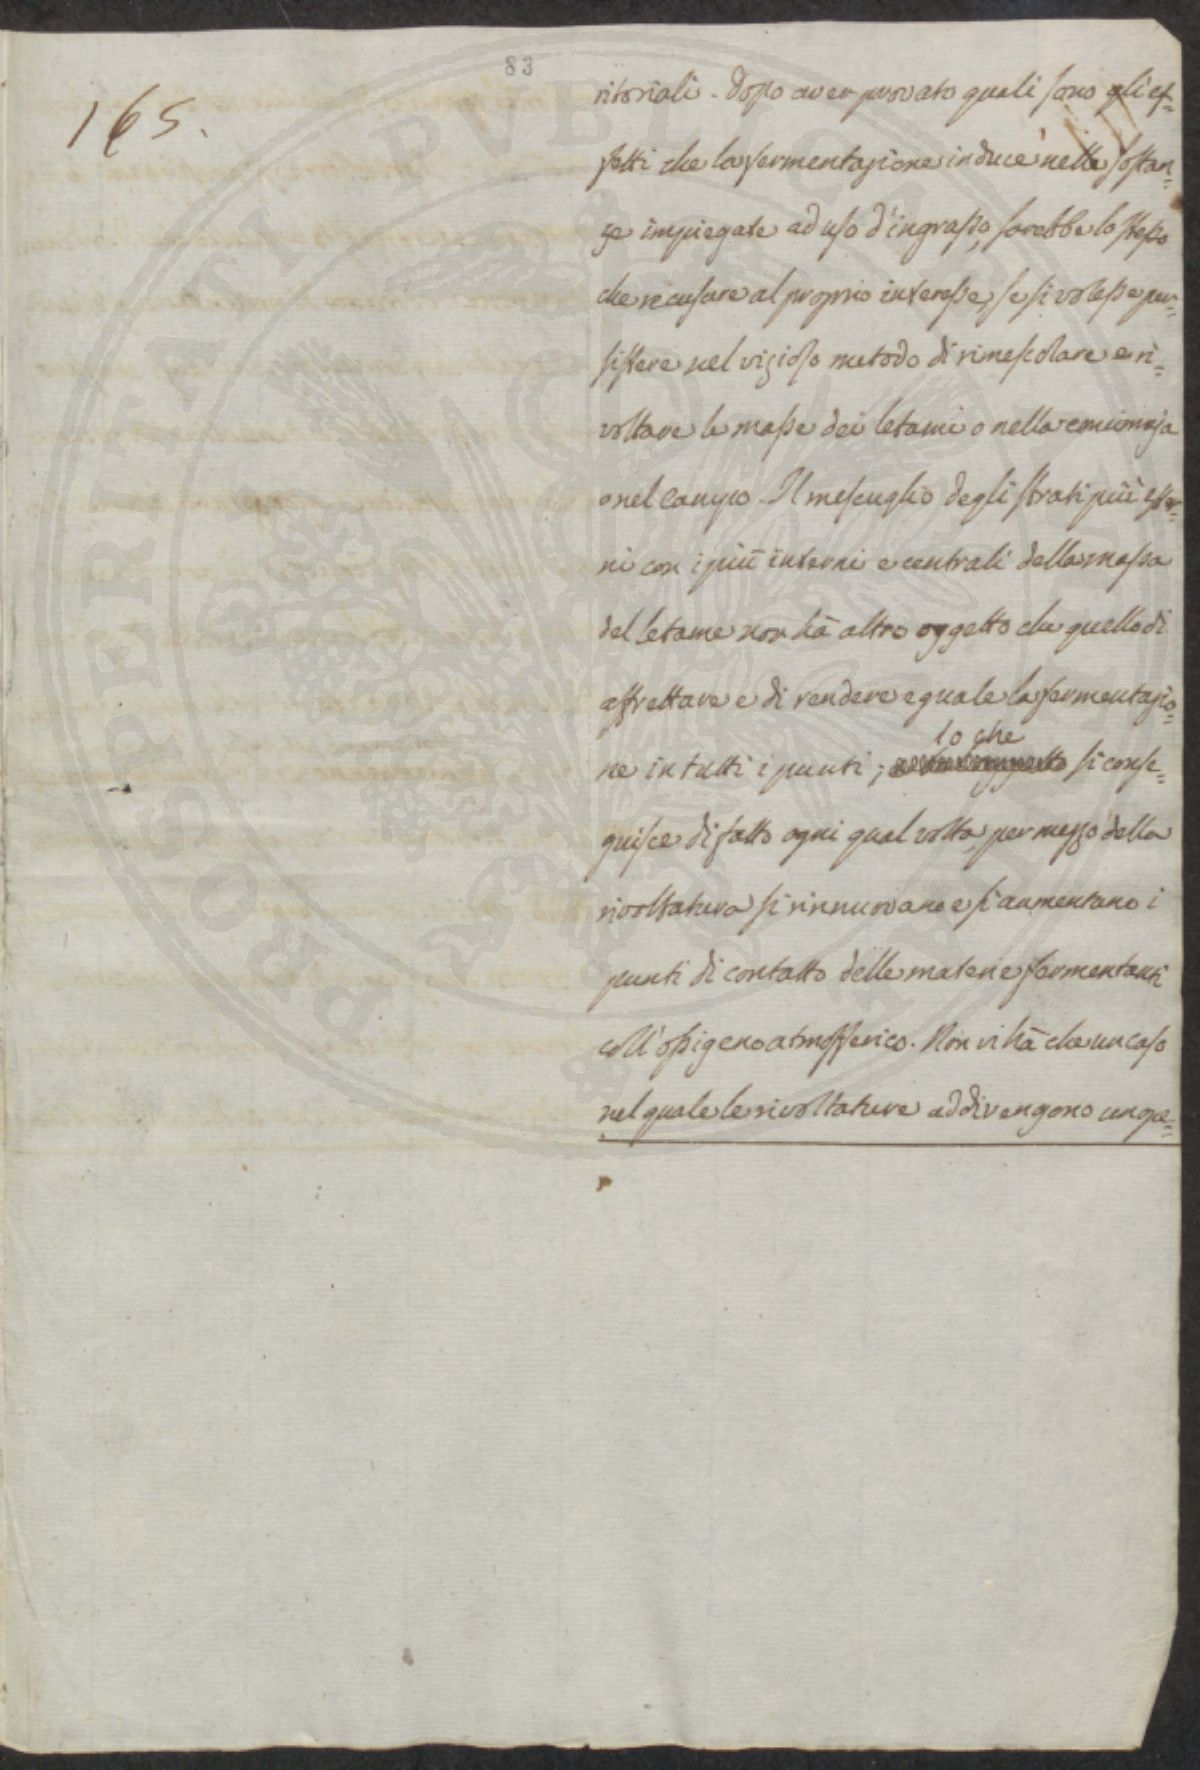 83
165.
ritoriali. Dopo aver provato quali sono gli ef=
fetti che la fermentazione induce nelle sostan=
ze impiegate ad uso d'ingrasso, sarebbe lo stesso
che recusare al proprio interesse, se si volesse per=
sistere nel vizioso metodo di rimescolare e ri=
voltare le masse dei letami o nella concimaja
o nel campo. Il mescuglio degli strati più ester=
ni con i più interni e centrali della massa
del letame non hà altro oggetto che quello di
affrettare e di rendere eguale la fermentazio=
lo che
ne in tutti i punti; si conse=
guisce di fatto ogni qual volta, per mezzo della
rivoltatura si rinnuovano e si aumentano i
punti di contatto delle materie fermentanti
coll'ossigeno atmosferico. Non vi hà che un caso
nel quale le rivoltature addivengono un ope=
PROSPERITATI PVBLICAE